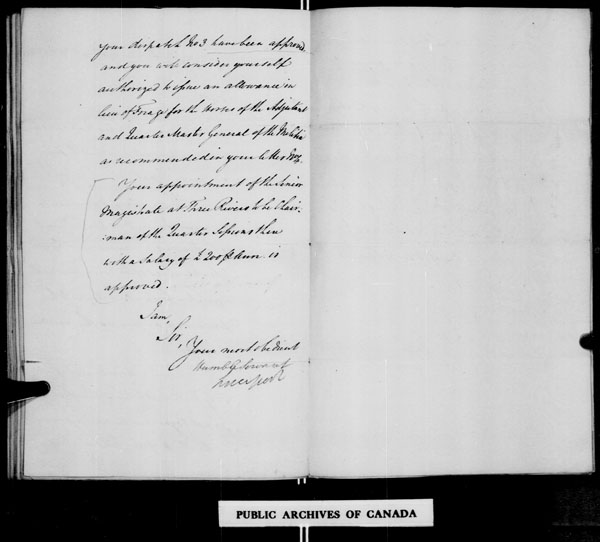 your dispatch No 3 have been approved
and you will consider yourself
authorized to issue an allowance in
lieu of Forage for the Horses of the Adjutant
and Quarter Master General of the Militia
as recommended in your letter No
Your appointment of the Senior
Magistrate at Three Rivers to be Chair-
:man of the Quarter Sessions there
with a Salary of £200 pr Ann. is
approved.
I am,
Sir,
Your most obedient
Humble Servant
Liverpool
PUBLIC ARCHIVES OF CANADA